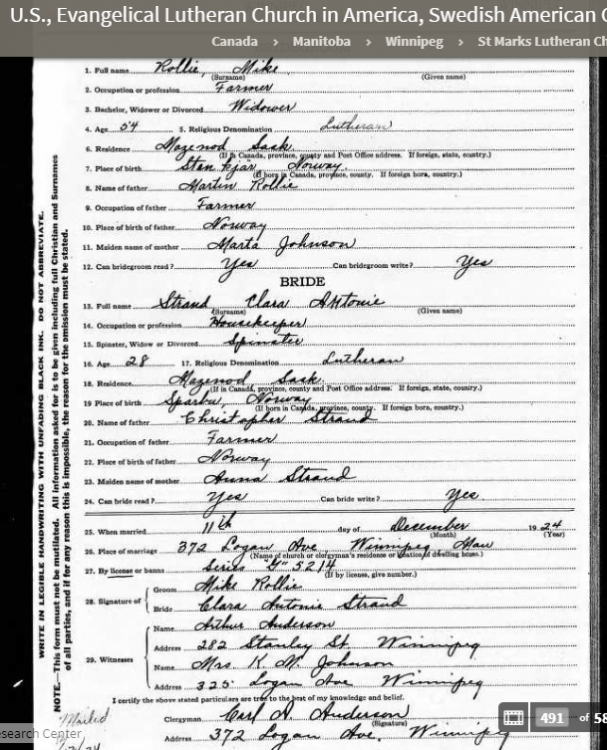 U.S., Evangelical Lutheran Church in America, Swedish American
Canada > Manitoba > Winnipeg > St Marks Lutheran Ch
1. Full name Rollie, Mike
(Surname) (Given name)
2. Occupation or profession Farmer
3. Bachelor, Widower or Divorced Widower
4. Age 54 5. Religious Denomination Lutheran
6. Residence Mazenod Sask.
(If in Canada, province, county and Post Office address. If foreign, state, country.)
7. Place of birth Norway
(If born in Canada, province, county. If foreign born, country.)
8. Name of father Martin Rollie
9. Occupation of father Farmer
10. Place of birth of father Norway
11. Maiden name of mother Marta Johnson
12. Can bridegroom read? Yes Can bridegroom write? Yes
BRIDE
13. Full name Strand, Clara Antonie
(Surname) (Given name)
14. Occupation or profession Housekeeper
15. Spinster, Widow or Divorced Spinster
16. Age 28 17. Religious Denomination Lutheran
18. Residence Mazenod Sask.
(If in Canada, province, county and Post Office address. If foreign, state, country.)
19 Place of birth Sparbu, Norway
(If born in Canada, province, county. If foreign born, country.)
20. Name of father Christopher Strand
21. Occupation of father Farmer
22. Place of birth of father Norway
23. Maiden name of mother Anna Strand
24. Can bride read? Yes Can bride write? Yes
25. When married 11th day of December 1924
(Month) (Year)
26. Place of marriage 372 Logan Ave, Winnipeg Man
(Name of church or clergyman's residence or location of dwelling house.)
27. By license or banns Series "G" 5214
(If by license, give number.)
28. Signature of Groom Mike Rollie
Bride Clara Antonie Strand
29. Witnesses Name Arthur Anderson
Address 282 Stanley St Winnipeg
Name Mrs. K. M. Johnson
Address 325 Logan Ave Winnipeg
I certify the above stated particulars are true to the best of my knowledge and belief.
Clergyman Carl A. Anderson
(Signature)
Address 372 Logan Ave, Winnipeg
WRITE IN LEGIBLE HANDWRITING WITH UNFADING BLACK INK. DO NOT ABBREVIATE.
NOTE.—This form must not be mutilated. All information asked for is to be given including full Christian and Surnames
of all parties, and if for any reason this is impossible, the reason for the omission must be stated.
Mailed
search Center
491 of 58